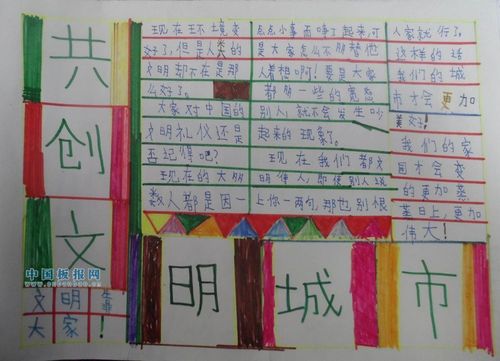 共
创
文
明
城
市
现在环境变
好了,但是人类的
文明却不在是那
么好了。
大家对中国的
文明礼仪还是
否记得吧?
现在的大部
数人都是因一
点点小事而争了起来,可
是大家怎么不朋替他
人着想啊!要是大家
都多一些的宽容
别人,就不会发生吵
起来的现象了。
现在我们都文
明使人,即使别人说
上你一两句,那也别恨
人家就行了。
这样的话
我们的城
市才会更加
美好!
我们的家
园才会变
的更加蒸
蒸日上,更加
伟大!
中国板报网
文明靠
大家!